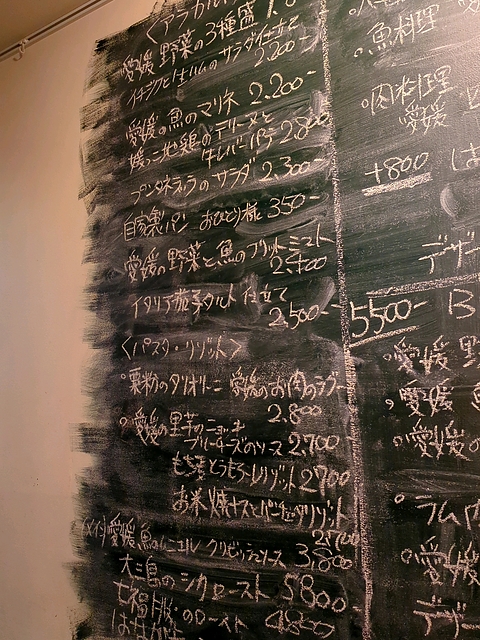 愛媛 野菜の3種盛
イチジクと生ハムのサラダ仕立て
2,200-
愛媛の魚のマリネ 2,200-
媛っこ地鶏のテリーヌと
牛レバーパテ 2,800-
プンタレッラのサラダ 2,300-
自家製パン おひとり様 350-
愛媛の野菜と魚のフリットミスト
2,400
イタリア茄子タルト仕立て
2,500-
<パスタ・リゾット>
栗粉のタリオリーニ 愛媛のお肉のラグー
2,800
愛媛の里芋のニョッキ
ブルーチーズのソース 2,700
もち麦とうもろこしリゾット 2700
お米 焼ナスと
リゾット
愛媛 魚の
ソース 3,800
大三島の
ロースト 5800-
七福
のロースト 4800-
魚料理
肉料理
愛媛
+800
デザー
5500- B
愛媛 野
愛媛
愛媛の
ラム肉
愛媛
デザ